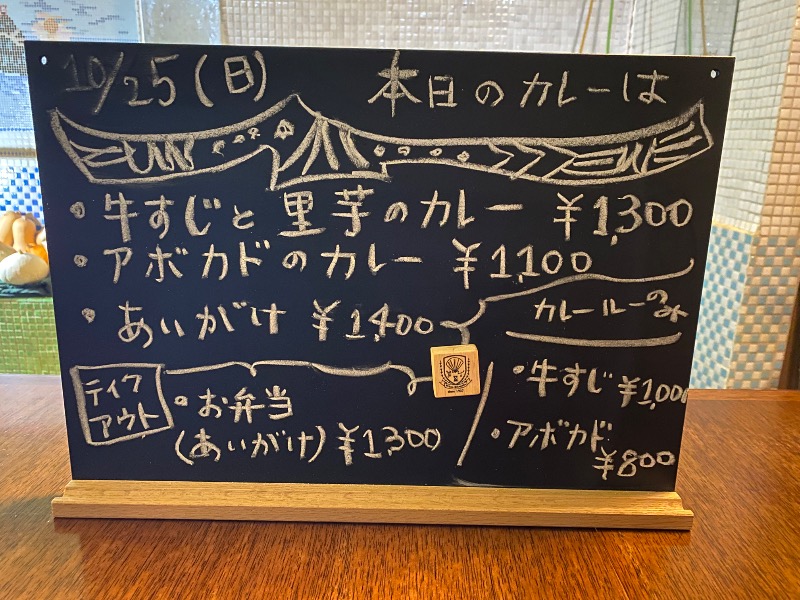 10/25(日) 本日のカレーは
・牛すじと里芋のカレー ¥1,300
・アボカドのカレー ¥1,100
・あいがけ ¥1,400
テイクアウト
・お弁当
(あいがけ) ¥1,300
カレールーのみ
・牛すじ ¥1,000
・アボカド
¥800